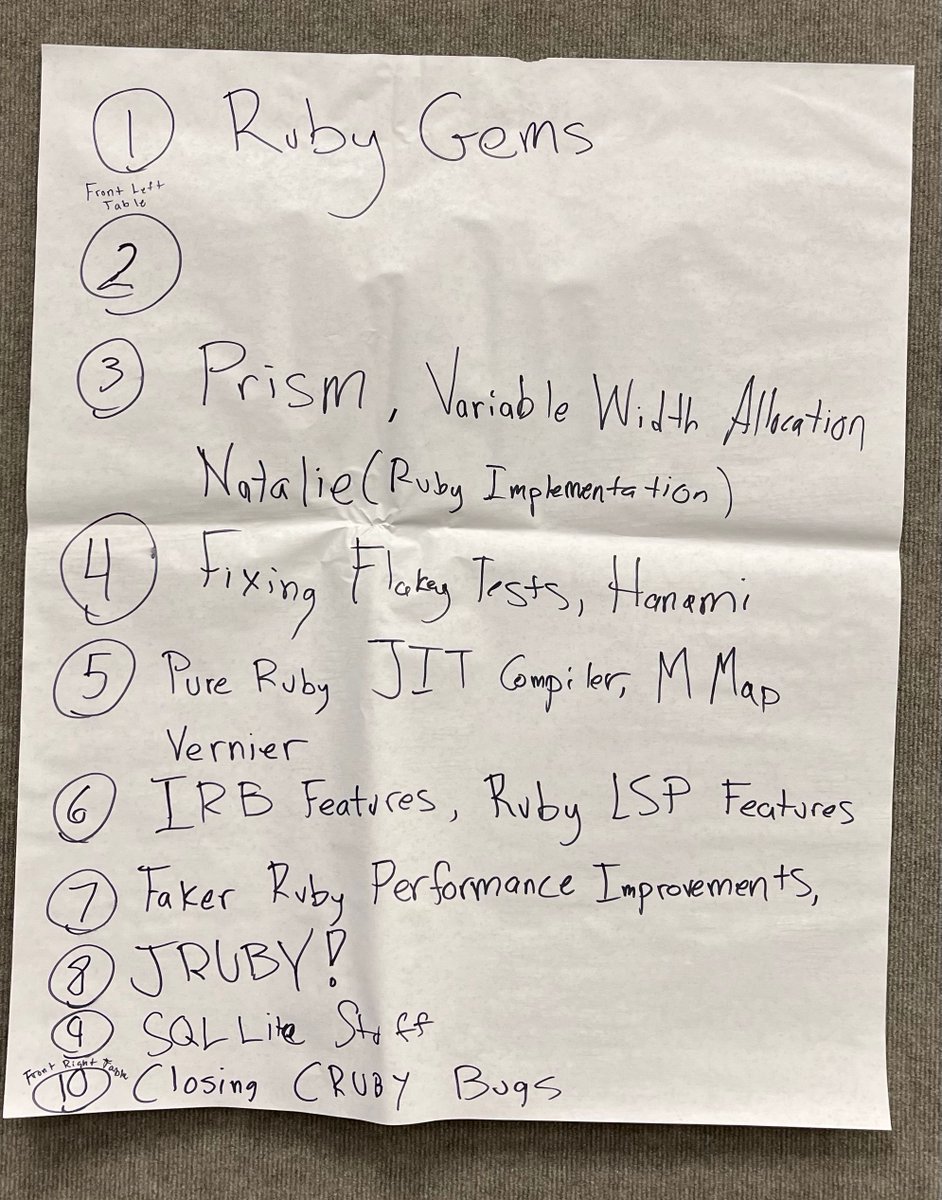 1 Ruby Gems
Front Left
Table
2
3 Prism, Variable Width Allocation
Natalie (Ruby Implementation)
4 Fixing Flakey Tests, Hanami
5 Pure Ruby JIT Compiler, M Map
Vernier
6 IRB Features, Ruby LSP Features
7 Faker Ruby Performance Improvements,
8 JRUBY!
9 SQL Lite Stuff
Front Right Table
10 Closing CRUBY Bugs